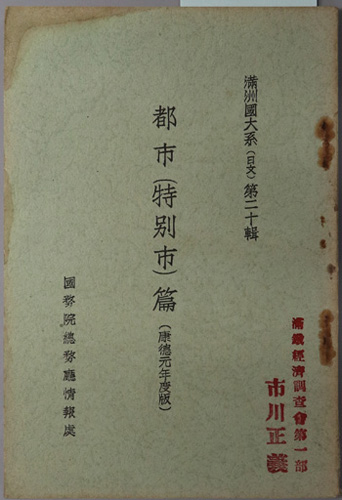 滿洲國大系(日文)第二十輯
都市(特別市)篇(康德元年度版)
國務院總務廳情報處
滿鐵經濟調查會第一部
市川正義